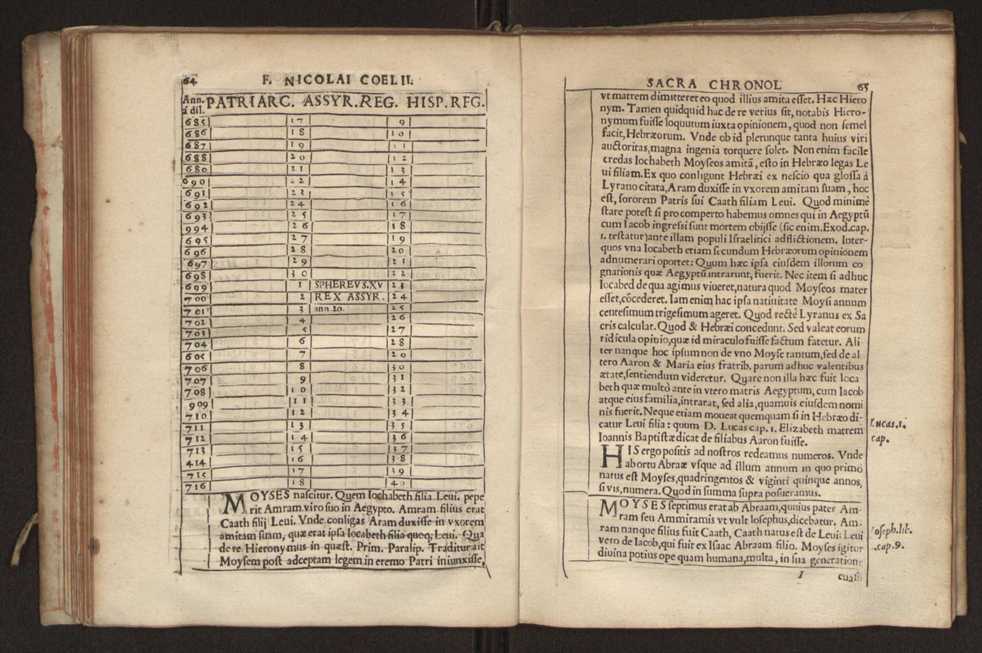 64 F. NICOLAI COELII.
Ann. PATRIARC. ASSYR. REG. HISP. REG.
á dil.
685 17 9
686 18 10
687 19 11
688 20 12
680 21 13
690 22 14
691 23 15
692 24 16
693 25 17
994 26 18
695 27 19
696 28 20
697 29 21
698 30 22
699 1 SPHEREVS. XV 23
700 2 REX ASSYR. 24
701 3 ann 20. 25
702 4 26
703 5 27
704 6 28
605 7 20
706 8 30
707 9 31
708 10 32
909 11 33
710 12 34
711 13 35
712 14 36
713 15 37
414 16 38
715 17 39
716 18 40
MOYSES nascitur. Quem Iochabeth filia Leui. pepe
rit Amram. viro suo in Aegypto. Amram filius erat
Caath filij Leui. Vnde conligas Aram duxisse in vxorem
amitam suam, quæ erat ipsa Iocabeth filia quoq; Leui. Qua
de re Hieronymus in quæst. Prim. Paralip. Traditur ait
Moysem post adceptam legem in eremo Patri iniunxisse,
SACRA CHRONOL 65
vt mattem dimitteret eo quod illius amita esset. Hac Hiero
nym. Tamen quidquid hac de re verius sit, notabis Hiero-
nymum fuisse loquutum iuxta opinionem, quod non semel
facit, Hebræorum. Vnde ob id plerunque tanta huius viri
auctoritas, magna ingenia torquere solet. Non enim facile
credas Iochabeth Moyseos amitã, esto in Hebræo legas Le
ui filiam. Ex quo conligunt Hebræi ex nescio qua glossa á
Lyrano citata, Aram duxisse in vxorem amitam suam, hoc
est, sororem Patris sui Caath filiam Leui. Quod minimè
stare potest si pro comperto habemus omnes qui in Aegyptũ
cum Iacob ingressi sunt mortem obijsse (sic enim. Exod. cap.
1. testatur) ante illam populi Israelitici adflictionem. Inter-
quos vna Iocabeth etiam secundum Hebræorum opinionem
adnumerari oportet: Quum hæc ipsa eiusdem illorum co
gnationis quæ Aegyptũ intrarunt, fuerit. Nec item si adhuc
Iocabed de qua agimus viueret, natura quod Moyseos mater
esset, cõcederet. Iam enim hac ipsa natiuitate Moysi annum
centesimum trigesimum ageret. Quod rectè Lyranus ex Sa
cris calculat. Quod & Hebræi concedunt. Sed valeat eorum
ridicula opinio, quæ id miraculo fuisse factum fatetur. Ali
ter nanque hoc ipsum non de vno Moyse tantum, sed de al
tero Aaron & Maria eius fratrib. parum adhuc valentibus
ætate, sentiendum videretur. Quare non illa hæc fuit Ioca
beth quæ multò ante in vtero matris Aegyptum, cum Iacob
atque eius familia, intrarat, sed alia, quamuis eiusdem nomi
nis fuerit. Neque etiam moueat quemquam si in Hebræo di-
catur Leui filia: quum D. Lucas cap. 1. Elizabeth matrem
Ioannis Baptistæ dicat de filiabus Aaron fuisse.
Lucas. 1.
cap.
HIS ergo positis ad nostros redeamus numeros. Vnde
ab ortu Abraæ vsque ad illum annum in quo primò
natus est Moyses, quadringentos & viginti quinque annos,
si vis, numera. Quod in summa supra posueramus.
MOYSES septimus erat ab Abraam, quius pater Am-
ram seu Ammiramis vt vult Iosephus, dicebatur. Am-
ram nanque filius fuit Caath, Caath natus est de Leui: Leui
vero de Iacob, qui fuit ex Isaac Abraam filio. Moyses igitur
diuina potius ope quam humana, multa, in sua generatione
Ioseph. lib.
cap. 9.
I